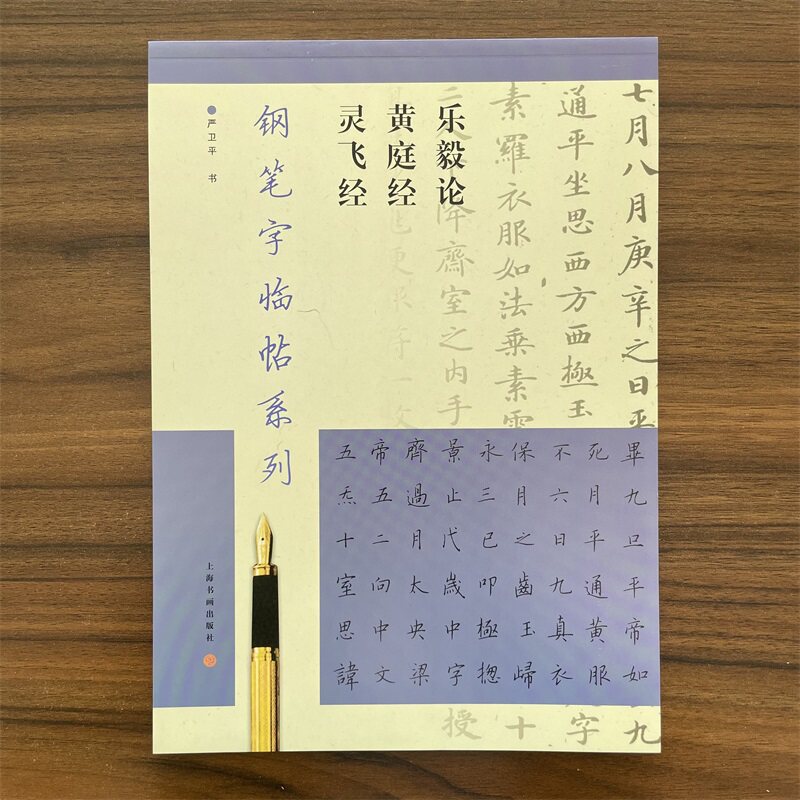 七月八月庚辛之日平
通平坐思西方西極玉
素羅衣服如法乗素雲
降齋室之内手
乐毅论
黄庭经
灵飞经
钢笔字临帖系列
严卫平 书
畢九旦平帝如
死月平通黄服
不六日九真衣
保月之齒玉歸
永三已叩極揔
景止代歲中字
齊過月太央梁
帝五二向中文
五炁十室思諱
九
字
十
授
上海书画出版社